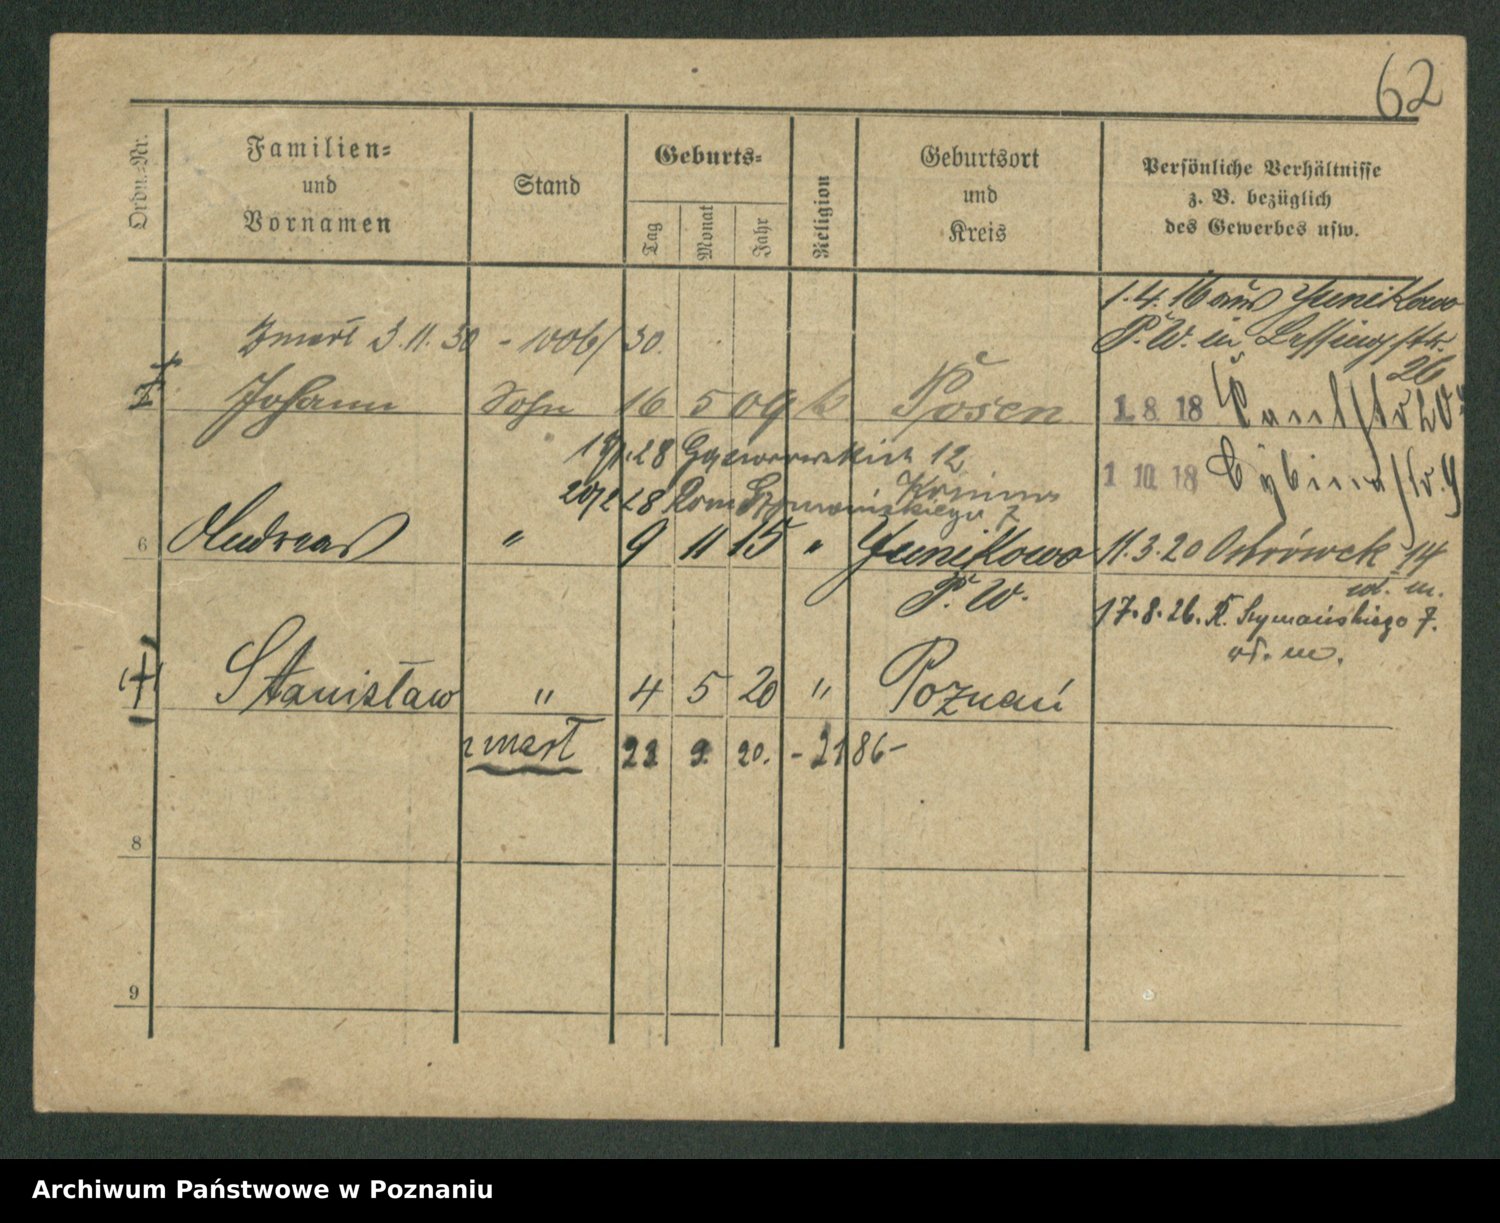 62
Ordn.-Nr.
Familien-
und
Vornamen
Stand
Geburts-
Tag
Monat
Jahr
Religion
Geburtsort
und
Kreis
Persönliche Verhältnisse
z. B. bezüglich
des Gewerbes usw.
1.4.16 aus Junikowo
P. W. in Lessingstr.
26
Zmarł 3.11.30 - 1006/30.
Johann Sohn 16 5 09 k Posen
1.8.18 Paulistr 20
28 12
1 10 18 Cybinastr. 9
20/2 28 Rom Szymańskiego 7
6 Andreas " 9 11 15 " Junikowo
P. W.
11.3.20 Ostrówek 14
wł. m.
17.8.26. R. Szymańskiego 7.
wł. m.
Stanisław " 4 5 20 " Poznań
zmarł 22 9. 20. - 2186 -
8
9
Archiwum Państwowe w Poznaniu